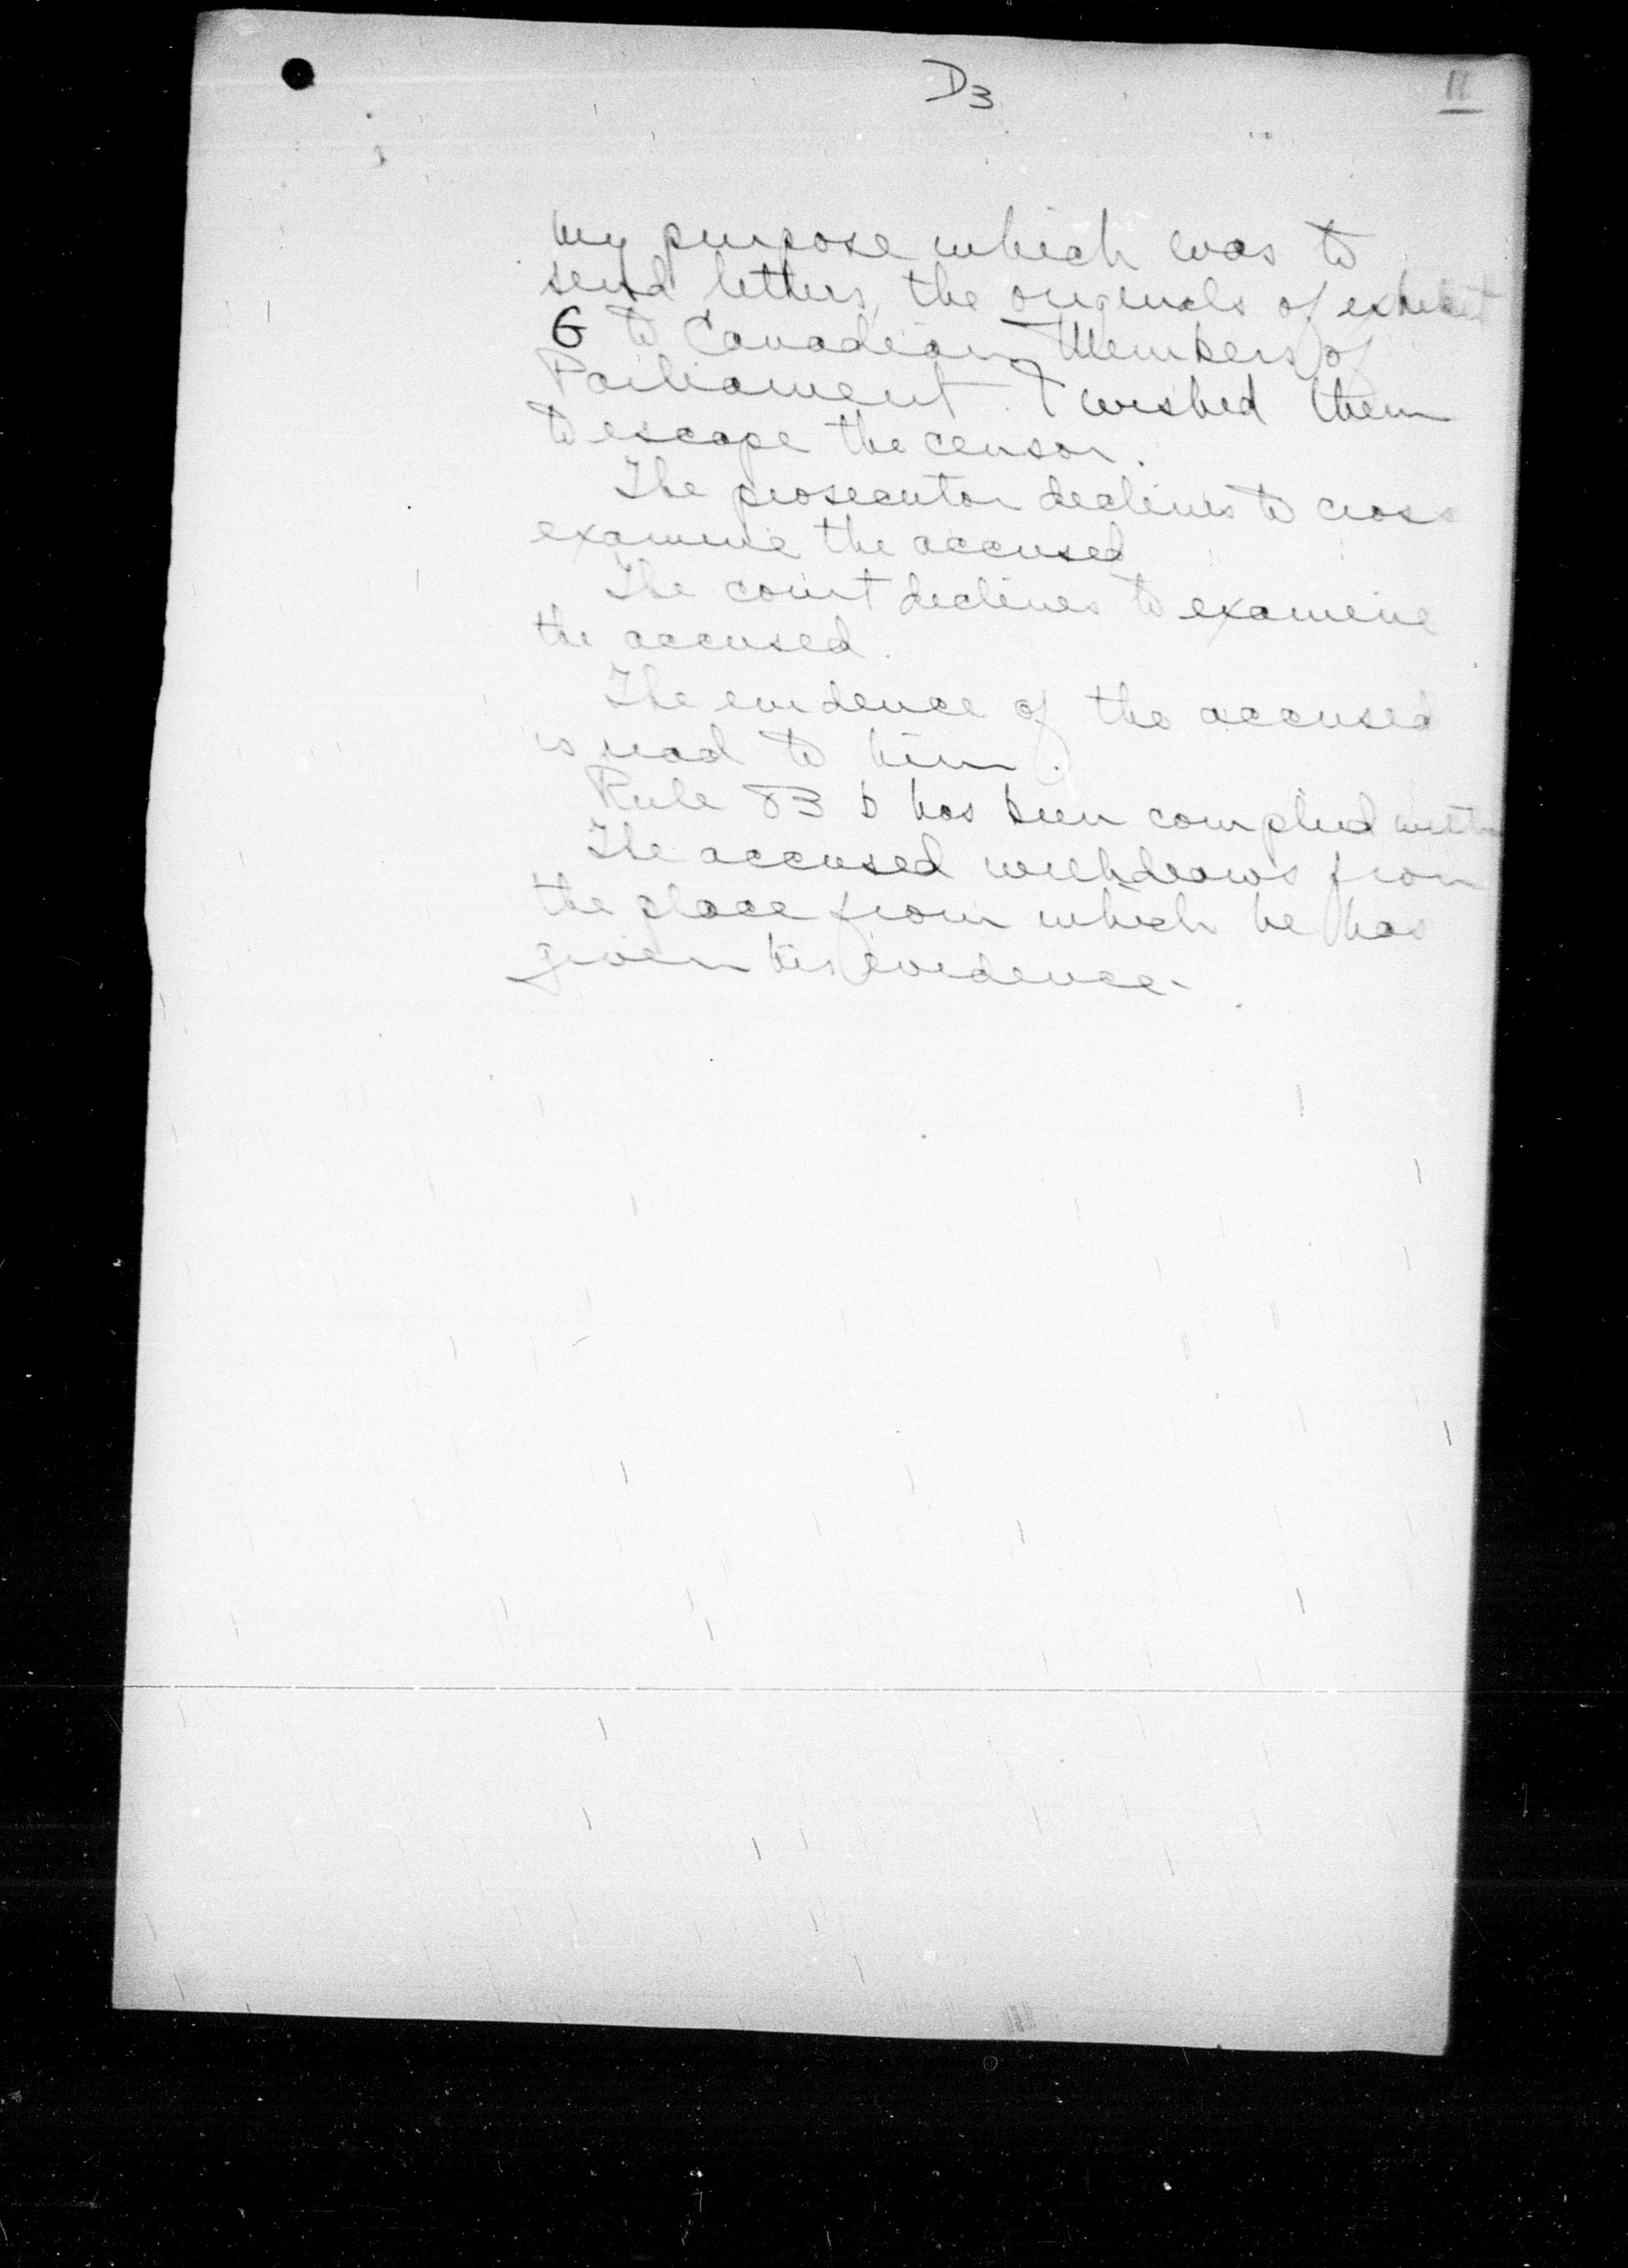 D3
11
my purpose which was to
send letters, the originals of exhibit
G to Canadian Members of
Parliament. I wished them
to escape the censor.
The prosecutor declines to cross
examine the accused
The court declines to examine
the accused.
The evidence of the accused
is read to him.
Rule 83 B has been complied with
The accused withdraws from
the place from which he has
given his evidence.